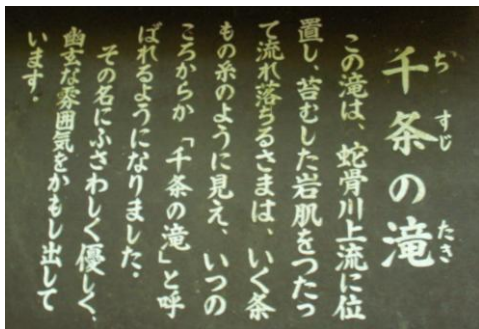 千条の滝
ぢ すじ たき
この滝は、蛇骨川上流に位
置し、苔むした岩肌をつたっ
て流れ落ちるさまは、いく条
もの糸のように見え、いつの
ころからか「千条の滝」と呼
ばれるようになりました。
その名にふさわしく優しく、
幽玄な雰囲気をかもし出して
います。